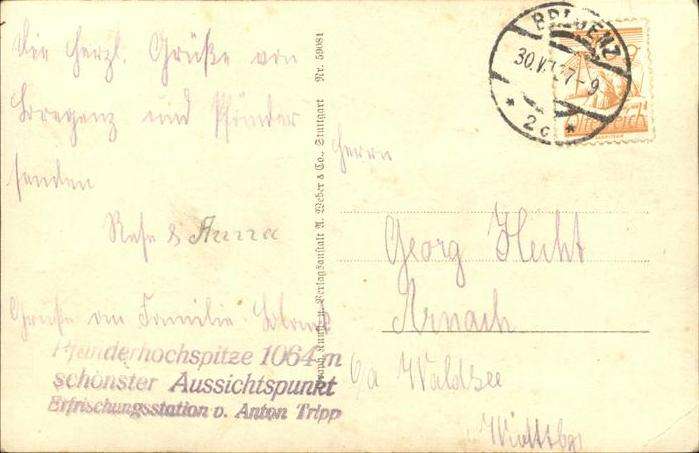 Die herzl. Grüße von
Bregenz und Pfänder
senden
Rese & Anna
Grüße an Familie
Pfänderhochspitze 1064 m
schönster Aussichtspunkt
Erfrischungsstation v. Anton Tripp
Verlagsanstalt A. Weber & Co., Stuttgart Nr. 59081
BREGENZ
30.V.27-9
* 2c *
Österreich
Herrn
Georg Hecht
Arnach
Waldsee
Württbg.